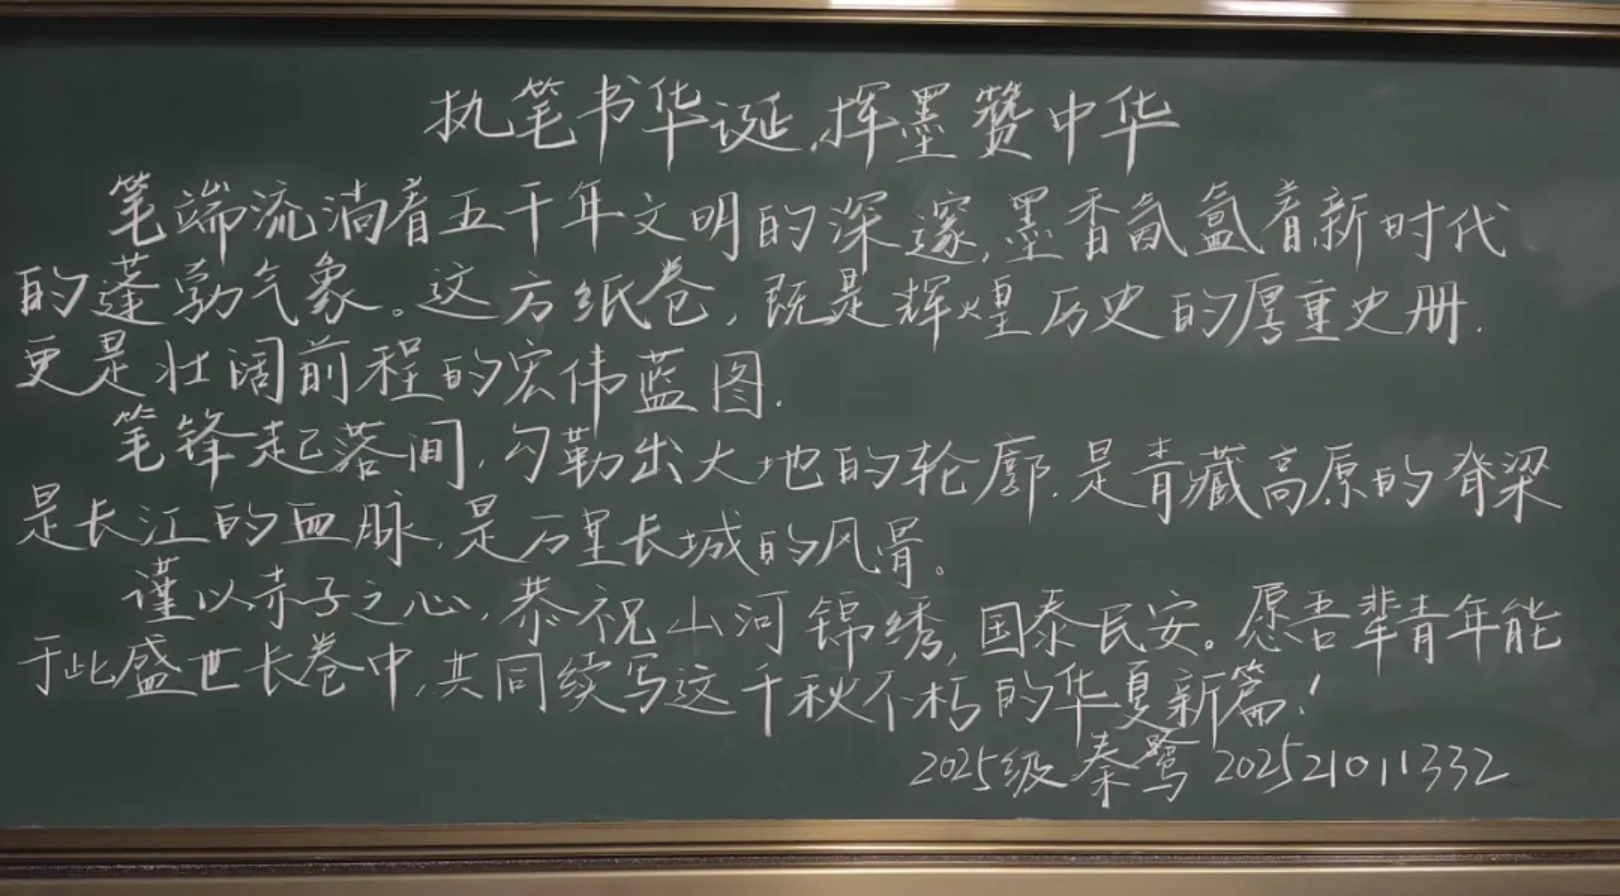 执笔书华诞,挥墨赞中华
笔端流淌着五千年文明的深邃,墨香氤氲着新时代
的蓬勃气象。这方纸卷,既是辉煌历史的厚重史册.
更是壮阔前程的宏伟蓝图.
笔锋起落间,勾勒出大地的轮廓.是青藏高原的脊梁
是长江的血脉,是万里长城的风骨。
谨以赤子之心,恭祝山河锦绣,国泰民安。愿吾辈青年能
于此盛世长卷中,共同续写这千秋不朽的华夏新篇!
2025级 秦鹭 202521011332